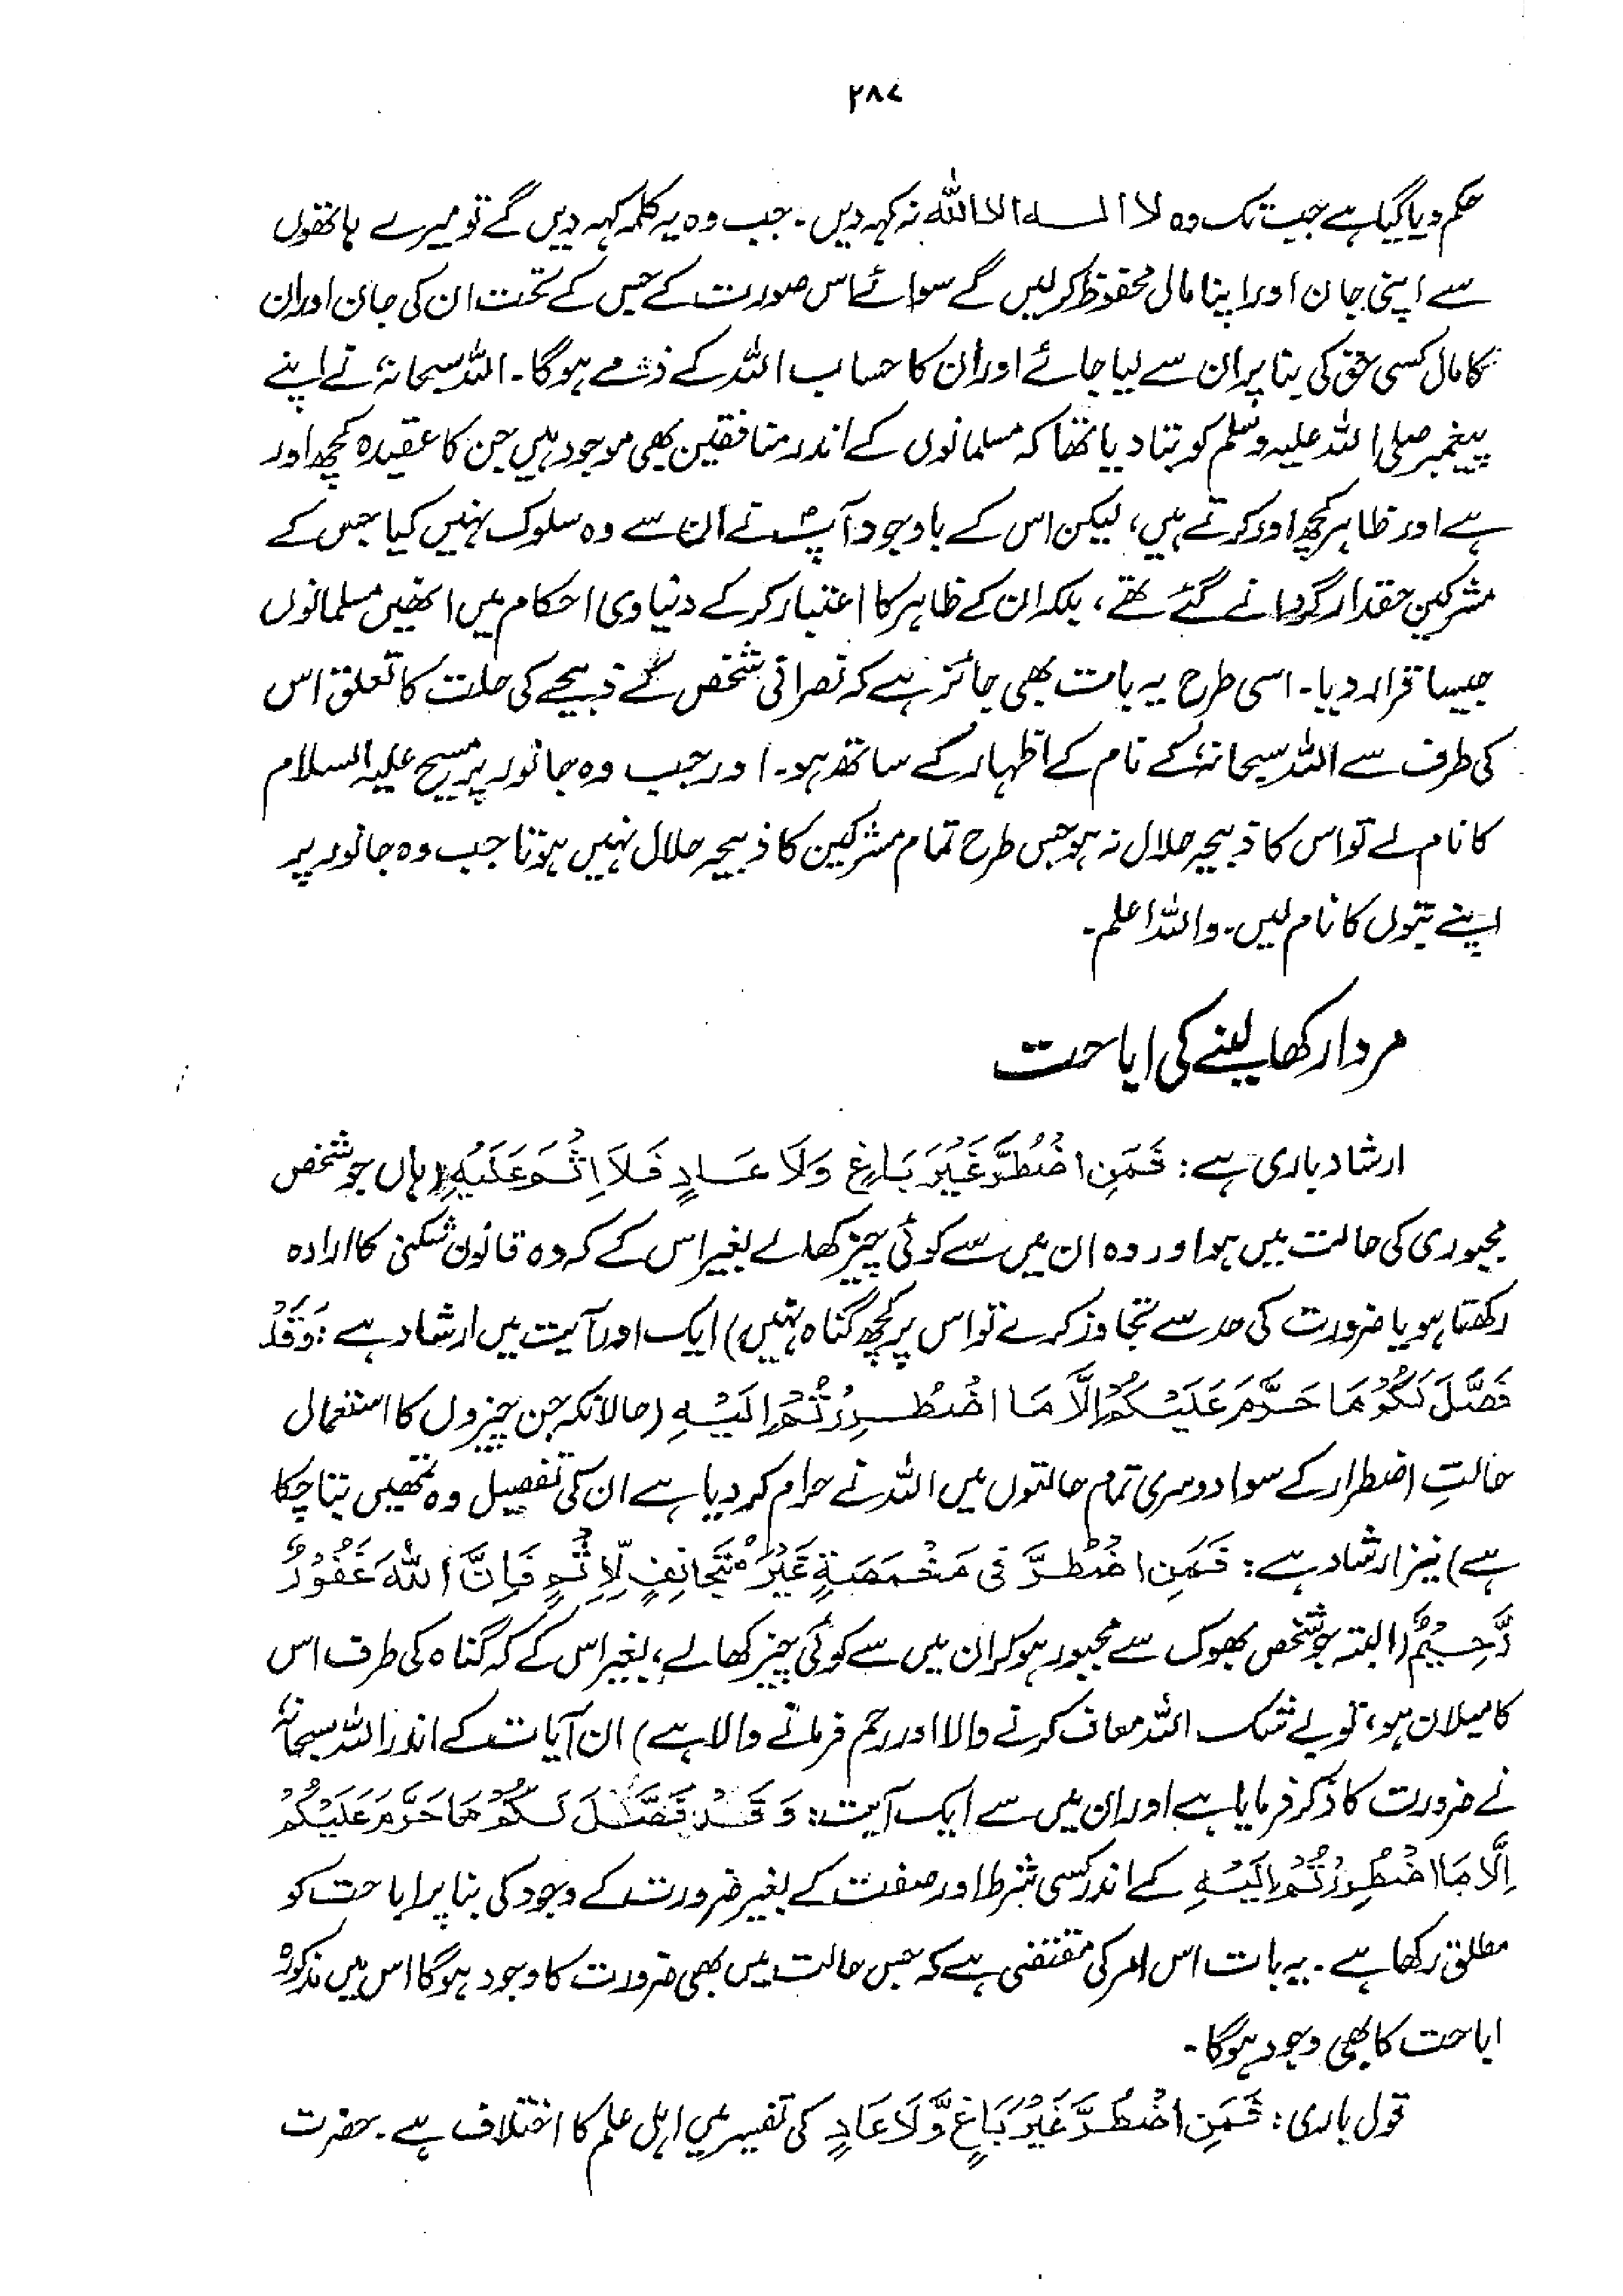 ۲۸۷
حکم دیا گیا ہے جب تک وہ لا الہ الا اللہ نہ کہہ دیں۔ جب وہ یہ کلمہ کہہ دیں گے تو میرے ہاتھوں
سے اپنی جان اور اپنا مال محفوظ کرلیں گے سوائے اس صورت کے جس کے تحت ان کی جان اور ان
کا مال کسی حق کی بنا پر ان سے لیا جائے اور ان کا حساب اللہ کے ذمے ہوگا۔ اللہ سبحانہٗ نے اپنے
پیغمبر صلی اللہ علیہ وسلم کو بتا دیا تھا کہ مسلمانوں کے اندر منافقین بھی موجود ہیں جن کا عقیدہ کچھ اور
ہے اور ظاہر کچھ اور کرتے ہیں، لیکن اس کے باوجود آپؐ نے ان سے وہ سلوک نہیں کیا جس کے
مشرکین حقدار گردانے گئے تھے، بلکہ ان کے ظاہر کا اعتبار کر کے دنیاوی احکام میں انھیں مسلمانوں
جیسا قرار دیا۔ اسی طرح یہ بات بھی جائز ہے کہ نصرانی شخص کے ذبیحے کی حلت کا تعلق اس
کی طرف سے اللہ سبحانہٗ کے نام کے اظہار کے ساتھ ہو۔ اور جب وہ جانور پر مسیح علیہ السلام
کا نام لے تو اس کا ذبیحہ حلال نہ ہو جس طرح تمام مشرکین کا ذبیحہ حلال نہیں ہوتا جب وہ جانور پر
اپنے بتوں کا نام لیں۔ واللہ اعلم۔
مردار کھا لینے کی اباحت
ارشاد باری ہے: فَمَنِ اضْطُرَّ غَيْرَ بَاغٍ وَلَا عَادٍ فَلَا اِثْمَ عَلَيْهِ (ہاں جو شخص
مجبوری کی حالت میں ہو اور وہ ان میں سے کوئی چیز کھالے بغیر اس کے کہ وہ قانون شکنی کا ارادہ
رکھتا ہو یا ضرورت کی حد سے تجاوز کرے تو اس پر کچھ گناہ نہیں) ایک اور آیت میں ارشاد ہے: وَقَدْ
فَصَّلَ لَكُمْ مَا حَرَّمَ عَلَيْكُمْ اِلَّا مَا اضْطُرِرْتُمْ اِلَيْهِ (حالانکہ جن چیزوں کا استعمال
حالتِ اضطرار کے سوا دوسری تمام حالتوں میں اللہ نے حرام کر دیا ہے ان کی تفصیل وہ تمھیں بتا چکا
ہے) نیز ارشاد ہے: فَمَنِ اضْطُرَّ فِي مَخْمَصَةٍ غَيْرَ مُتَجَانِفٍ لِّاِثْمٍ فَاِنَّ اللّٰهَ غَفُوْرٌ
رَّحِيْمٌ (البتہ جو شخص بھوک سے مجبور ہو کر ان میں سے کوئی چیز کھالے، بغیر اس کے کہ گناہ کی طرف اس
کا میلان ہو، تو بے شک اللہ معاف کرنے والا اور رحم فرمانے والا ہے) ان آیات کے اندر اللہ سبحانہٗ
نے ضرورت کا ذکر فرمایا ہے اور ان میں سے ایک آیت: وَقَدْ فَصَّلَ لَكُمْ مَا حَرَّمَ عَلَيْكُمْ
اِلَّا مَا اضْطُرِرْتُمْ اِلَيْهِ کے اندر کسی شرط اور صفت کے بغیر ضرورت کے وجود کی بنا پر اباحت کو
مطلق رکھا ہے۔ یہ بات اس امر کی مقتضی ہے کہ جس حالت میں بھی ضرورت کا وجود ہوگا اس میں مذکورہ
اباحت کا بھی وجود ہوگا۔
قول باری: فَمَنِ اضْطُرَّ غَيْرَ بَاغٍ وَّلَا عَادٍ کی تفسیر میں اہل علم کا اختلاف ہے۔ حضرت